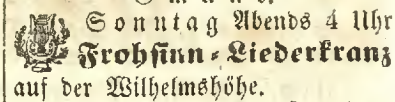 Sonntag Abends 4 Uhr
Frohsinn-Liederkranz
auf der Wilhelmshöhe.